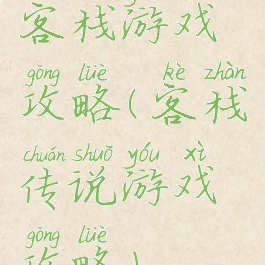 客栈游戏
gōng lüè kè zhàn
攻略(客栈
chuán shuō yóu xì
传说游戏
gōng lüè
攻略)